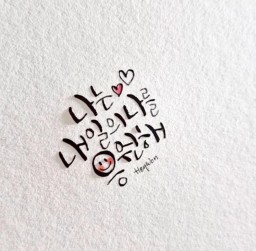 나는
내일의 나를
응원해